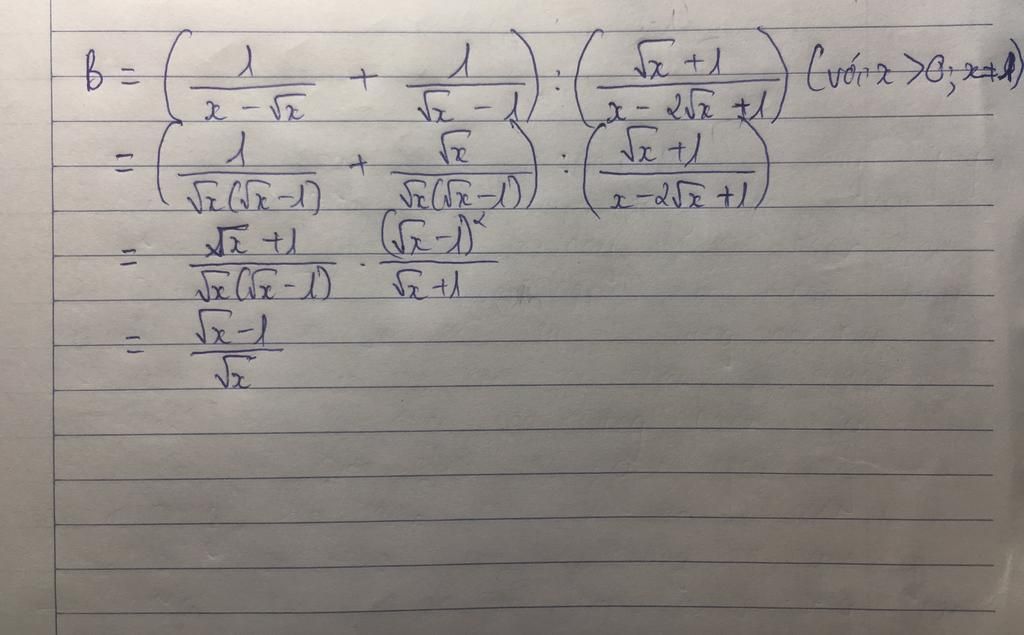 B = ( 1/(x - √x) + 1/(√x - 1) ) : ( (√x + 1)/(x - 2√x + 1) ) (với x > 0; x ≠ 1)
= ( 1/(√x(√x - 1)) + √x/(√x(√x - 1)) ) : ( (√x + 1)/(x - 2√x + 1) )
= (√x + 1)/(√x(√x - 1)) . (√x - 1)²/(√x + 1)
= (√x - 1)/√x